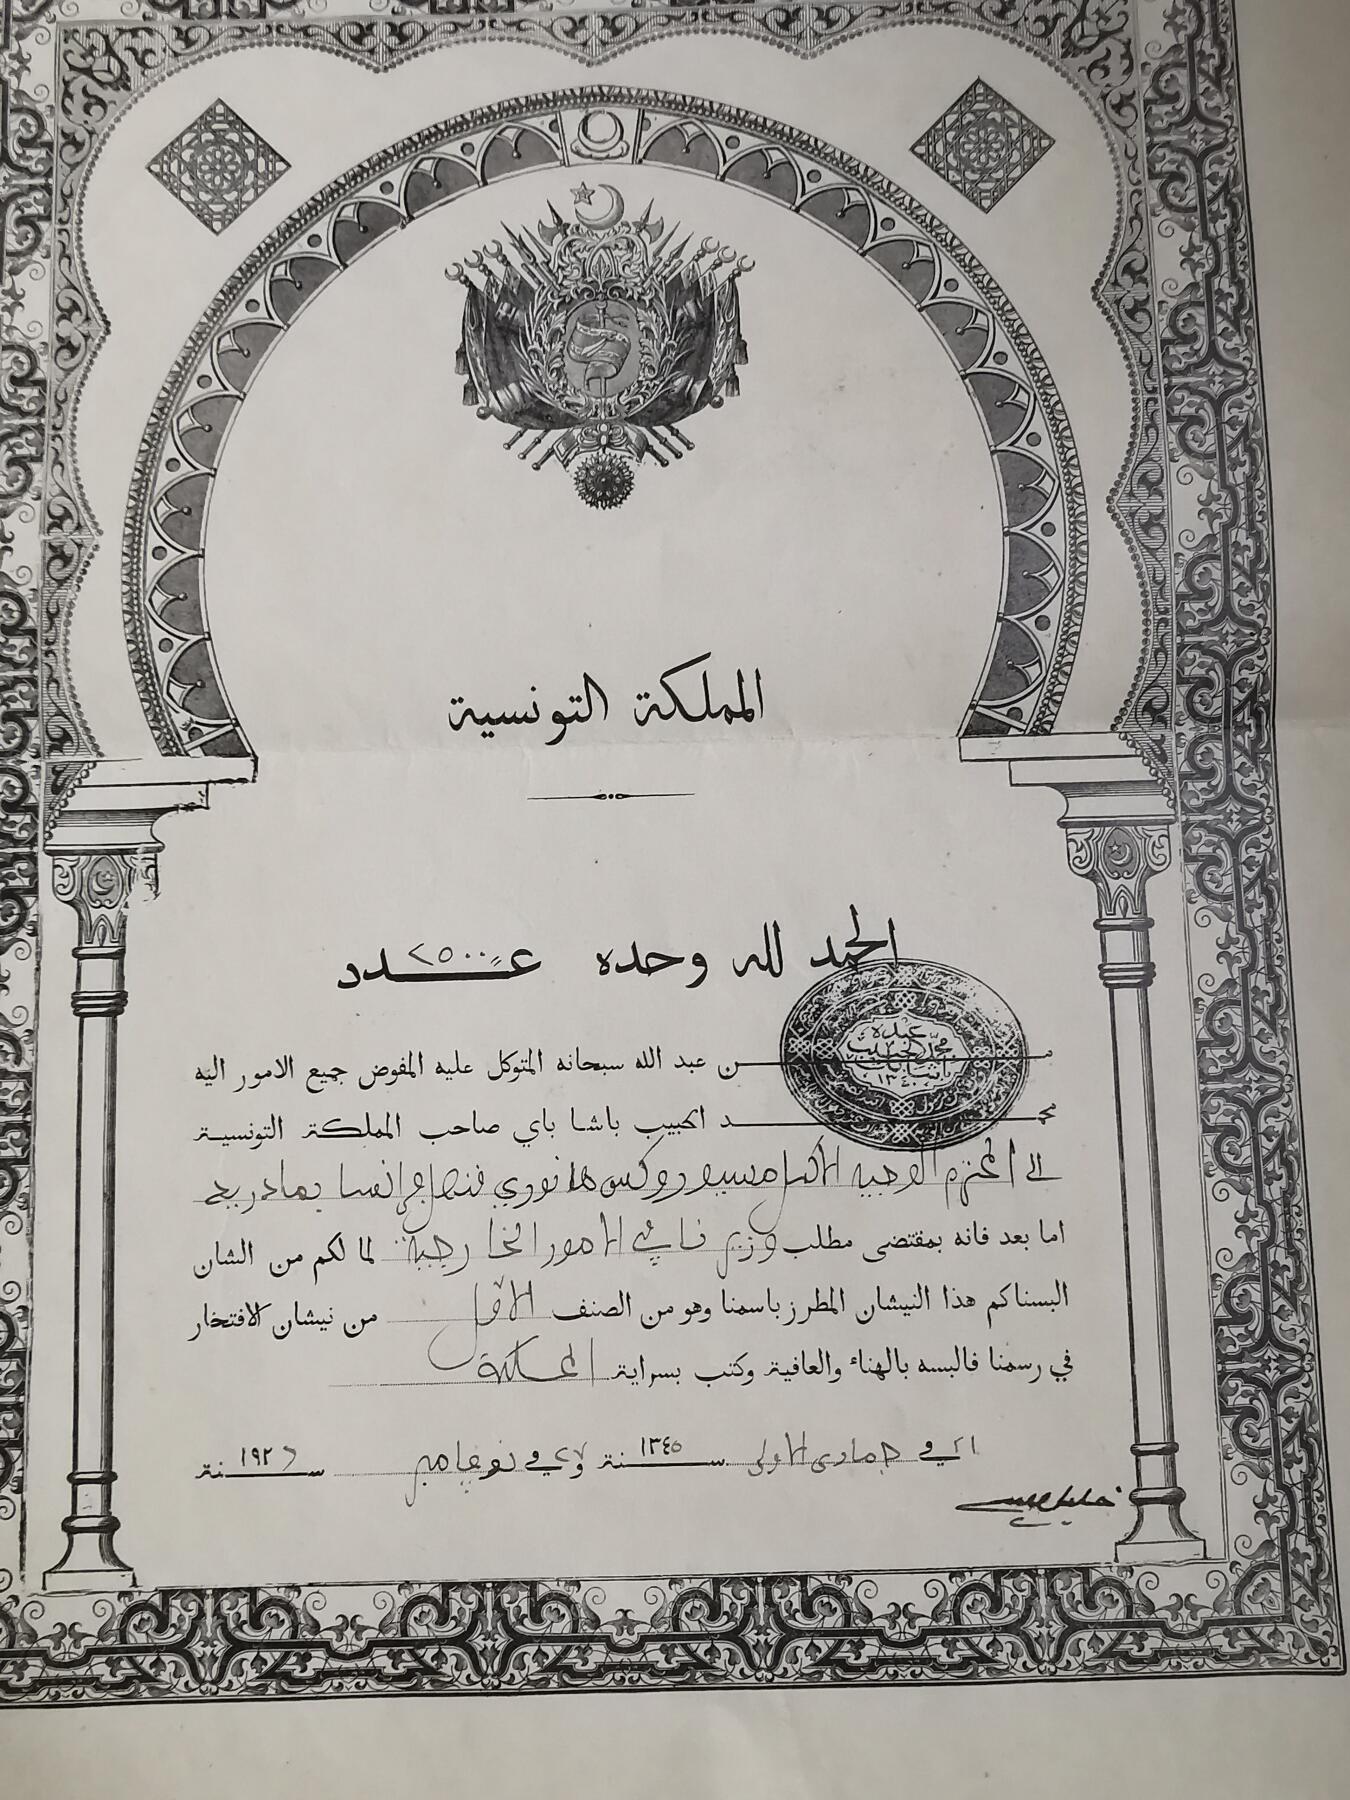 المملكة التونسية
الحمد لله وحده عدد ٢٥٠٠
عبده
محمد الحبيب
باشا باي
١٣٤٠
من عبد الله سبحانه المتوكل عليه المفوض جميع الامور اليه
محمد الحبيب باشا باي صاحب المملكة التونسية
الى المحترم الوجيه الاكمل مسيو روكس هانوري قنصل فرانسا بمادريد
اما بعد فانه بمقتضى مطلب وزير الامور الخارجية لما لكم من الشان
البسناكم هذا النيشان المطرز باسمنا وهو من الصنف الاول من نيشان الافتخار
في رسمنا فالبسه بالهناء والعافية وكتب بسراية المملكة
في جمادى الاولى سنة ١٣٤٥ وفي نوفامبر سنة ١٩٢٦